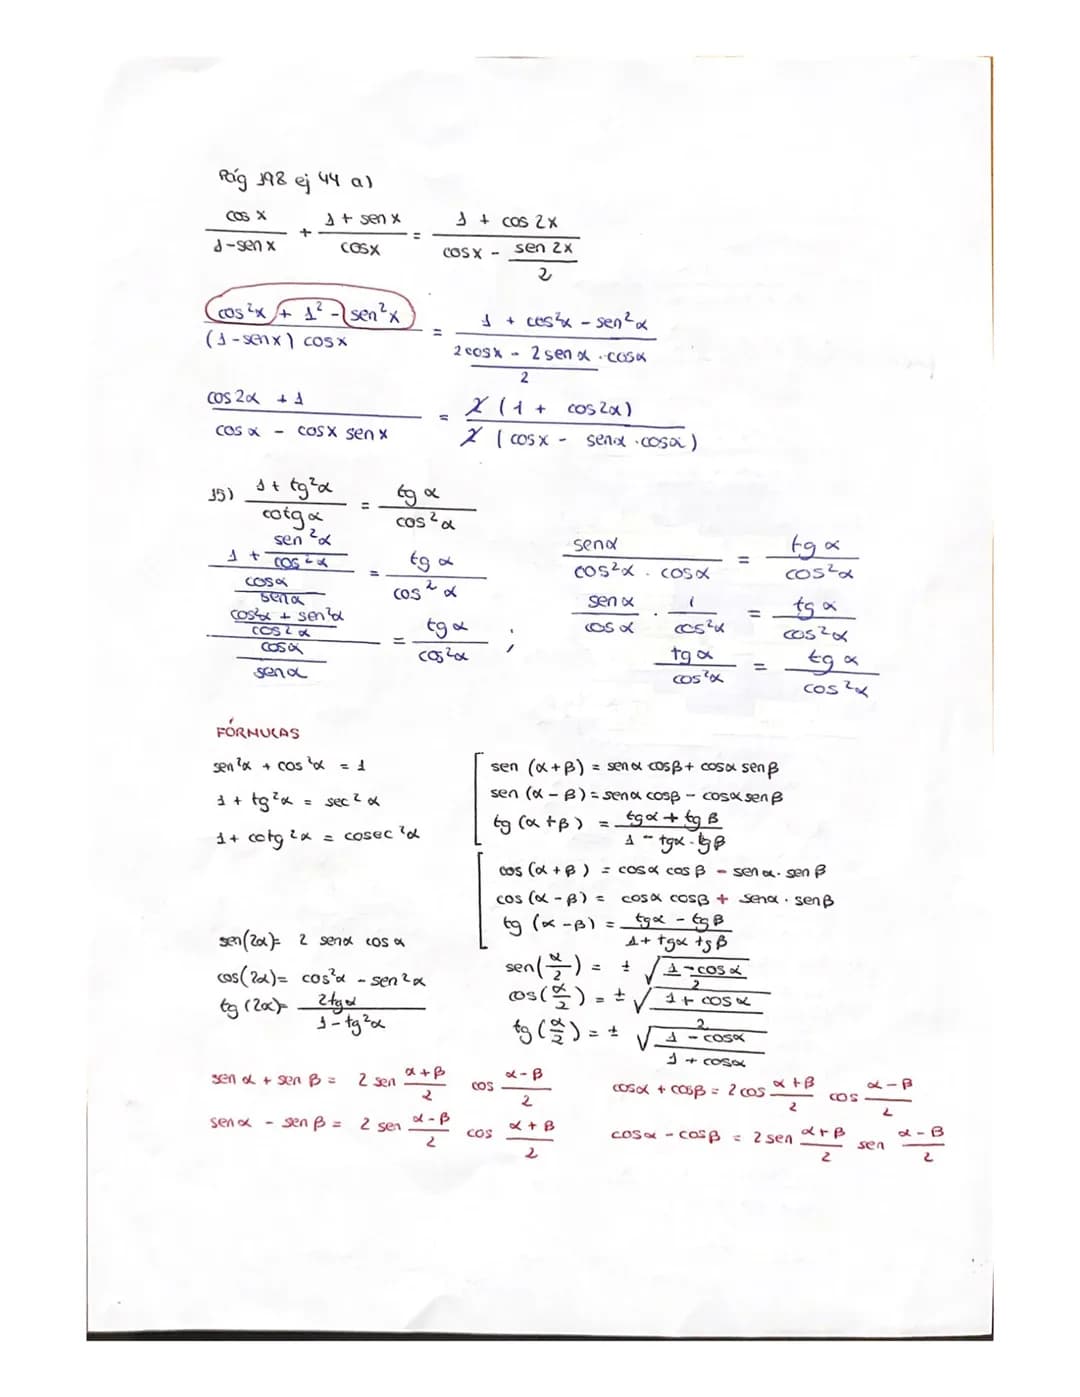 Pág 198 ej 44 a)
cos x / 1-sen x + 1 + sen x / cosx = 1 + cos 2x / cosx - sen 2x / 2
cos²x + 1² - sen²x / (1-senx) cosx = 1 + cos²x - sen²α / 2cosx - 2 sen α · cosα / 2
cos 2α + 1 / cos α - cosx sen x = 2 (1 + cos2α) / 2 (cosx - senα · cosα)
15) 1 + tg²α / cotg α = tg α / cos²α
1 + sen²α / cos²α / cosα / senα = tg α / cos²α
cos²α + sen²α / cos²α / cosα / senα = tg α / cos²α ;
senα / cos²α · cosα = tg α / cos²α
sen α / cos α · 1 / cos²α = tg α / cos²α
tg α / cos²α = tg α / cos²α
FÓRMULAS
sen²α + cos²α = 1
1 + tg²α = sec²α
1 + cotg²α = cosec²α
sen(2α)= 2 senα cos α
cos(2α)= cos²α - sen²α
tg(2α)= 2tgα / 1-tg²α
sen (α+β) = senα cosβ + cosα senβ
sen (α-β) = senα cosβ - cosα senβ
tg (α+β) = tgα + tg β / 1 - tgα · tgβ
cos (α+β) = cosα cos β - sen α · sen β
cos (α-β) = cosα cosβ + senα · senβ
tg (α-β) = tgα - tgβ / 1+ tgα tgβ
sen(α/2) = ± √ 1-cos α / 2
cos(α/2) = ± √ 1 + cos α / 2
tg(α/2) = ± √ 1 - cosα / 1 + cosα
sen α + sen β = 2 sen α+β / 2 cos α-β / 2
sen α - sen β = 2 sen α-β / 2 cos α+β / 2
cosα + cosβ = 2 cos α+β / 2 cos α-β / 2
cosα - cosβ = 2 sen α+β / 2 sen α-β / 2